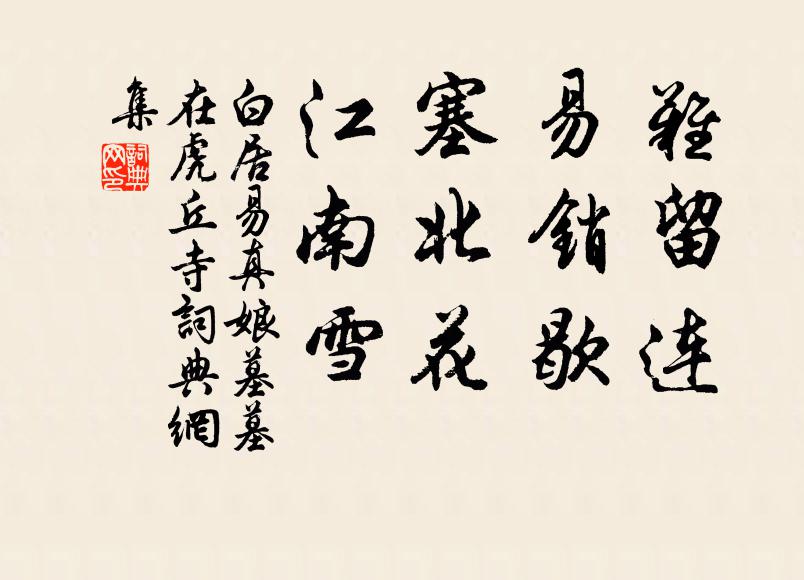 難留連
易銷歇
塞北花
江南雪
白居易真娘墓墓
在虎丘寺詞典網
集
詞典網印